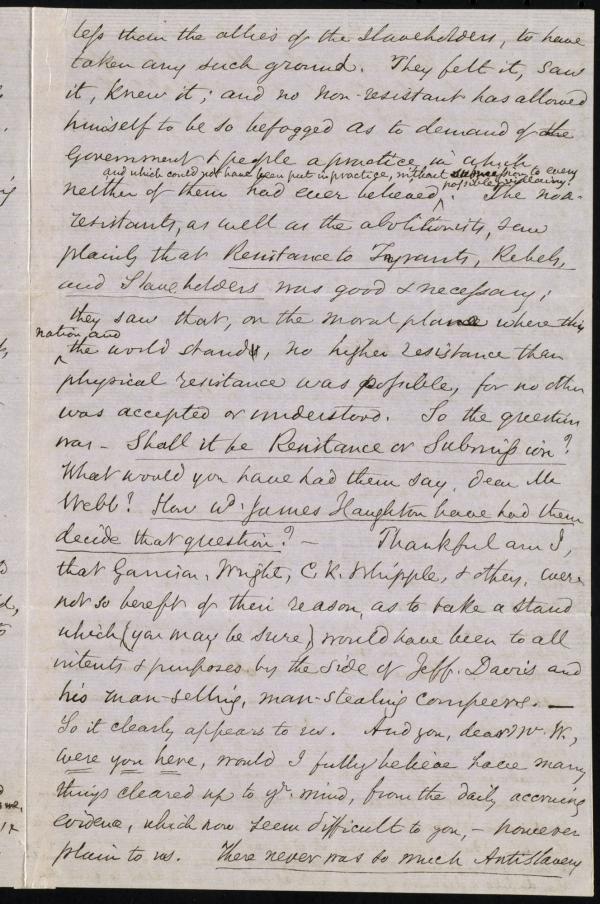 less than the allies of the Slaveholders, to have
taken any such ground. They felt it, saw
it, knew it; and no Non-resistant has allowed
himself to be so befogged as to demand of the
Government & people a practice, in which
and which could not have been put in practice, without submission to every
possible villainy.
neither of them had ever believed ^. The non-
resistants, as well as the abolitionists, saw
plainly that Resistance to Tyrants, Rebels,
and Slaveholders was good & necessary;
they saw that, on the moral plane where this
nation and
^ the world stands, no higher resistance than
physical resistance was possible, for no other
was accepted or understood. So the question
was - Shall it be Resistance or Submission?
What would you have had them say, dear Mr
Webb? How wd. James Haughton have had them
decide that question? - Thankful am I,
that Garrison, Wright, C. K. Whipple, & others, were
not so bereft of their reason, as to take a stand
which (you may be sure) would have been to all
intents & purposes by the side of Jeff. Davis and
his man-selling, man-stealing compeers. —
So it clearly appears to us. And you, dear Mr. W.,
were you here, would I fully believe have many
things cleared up to yr. mind, from the daily accruing
evidence, which now seem difficult to you, - however
plain to us. There never was so much Antislavery